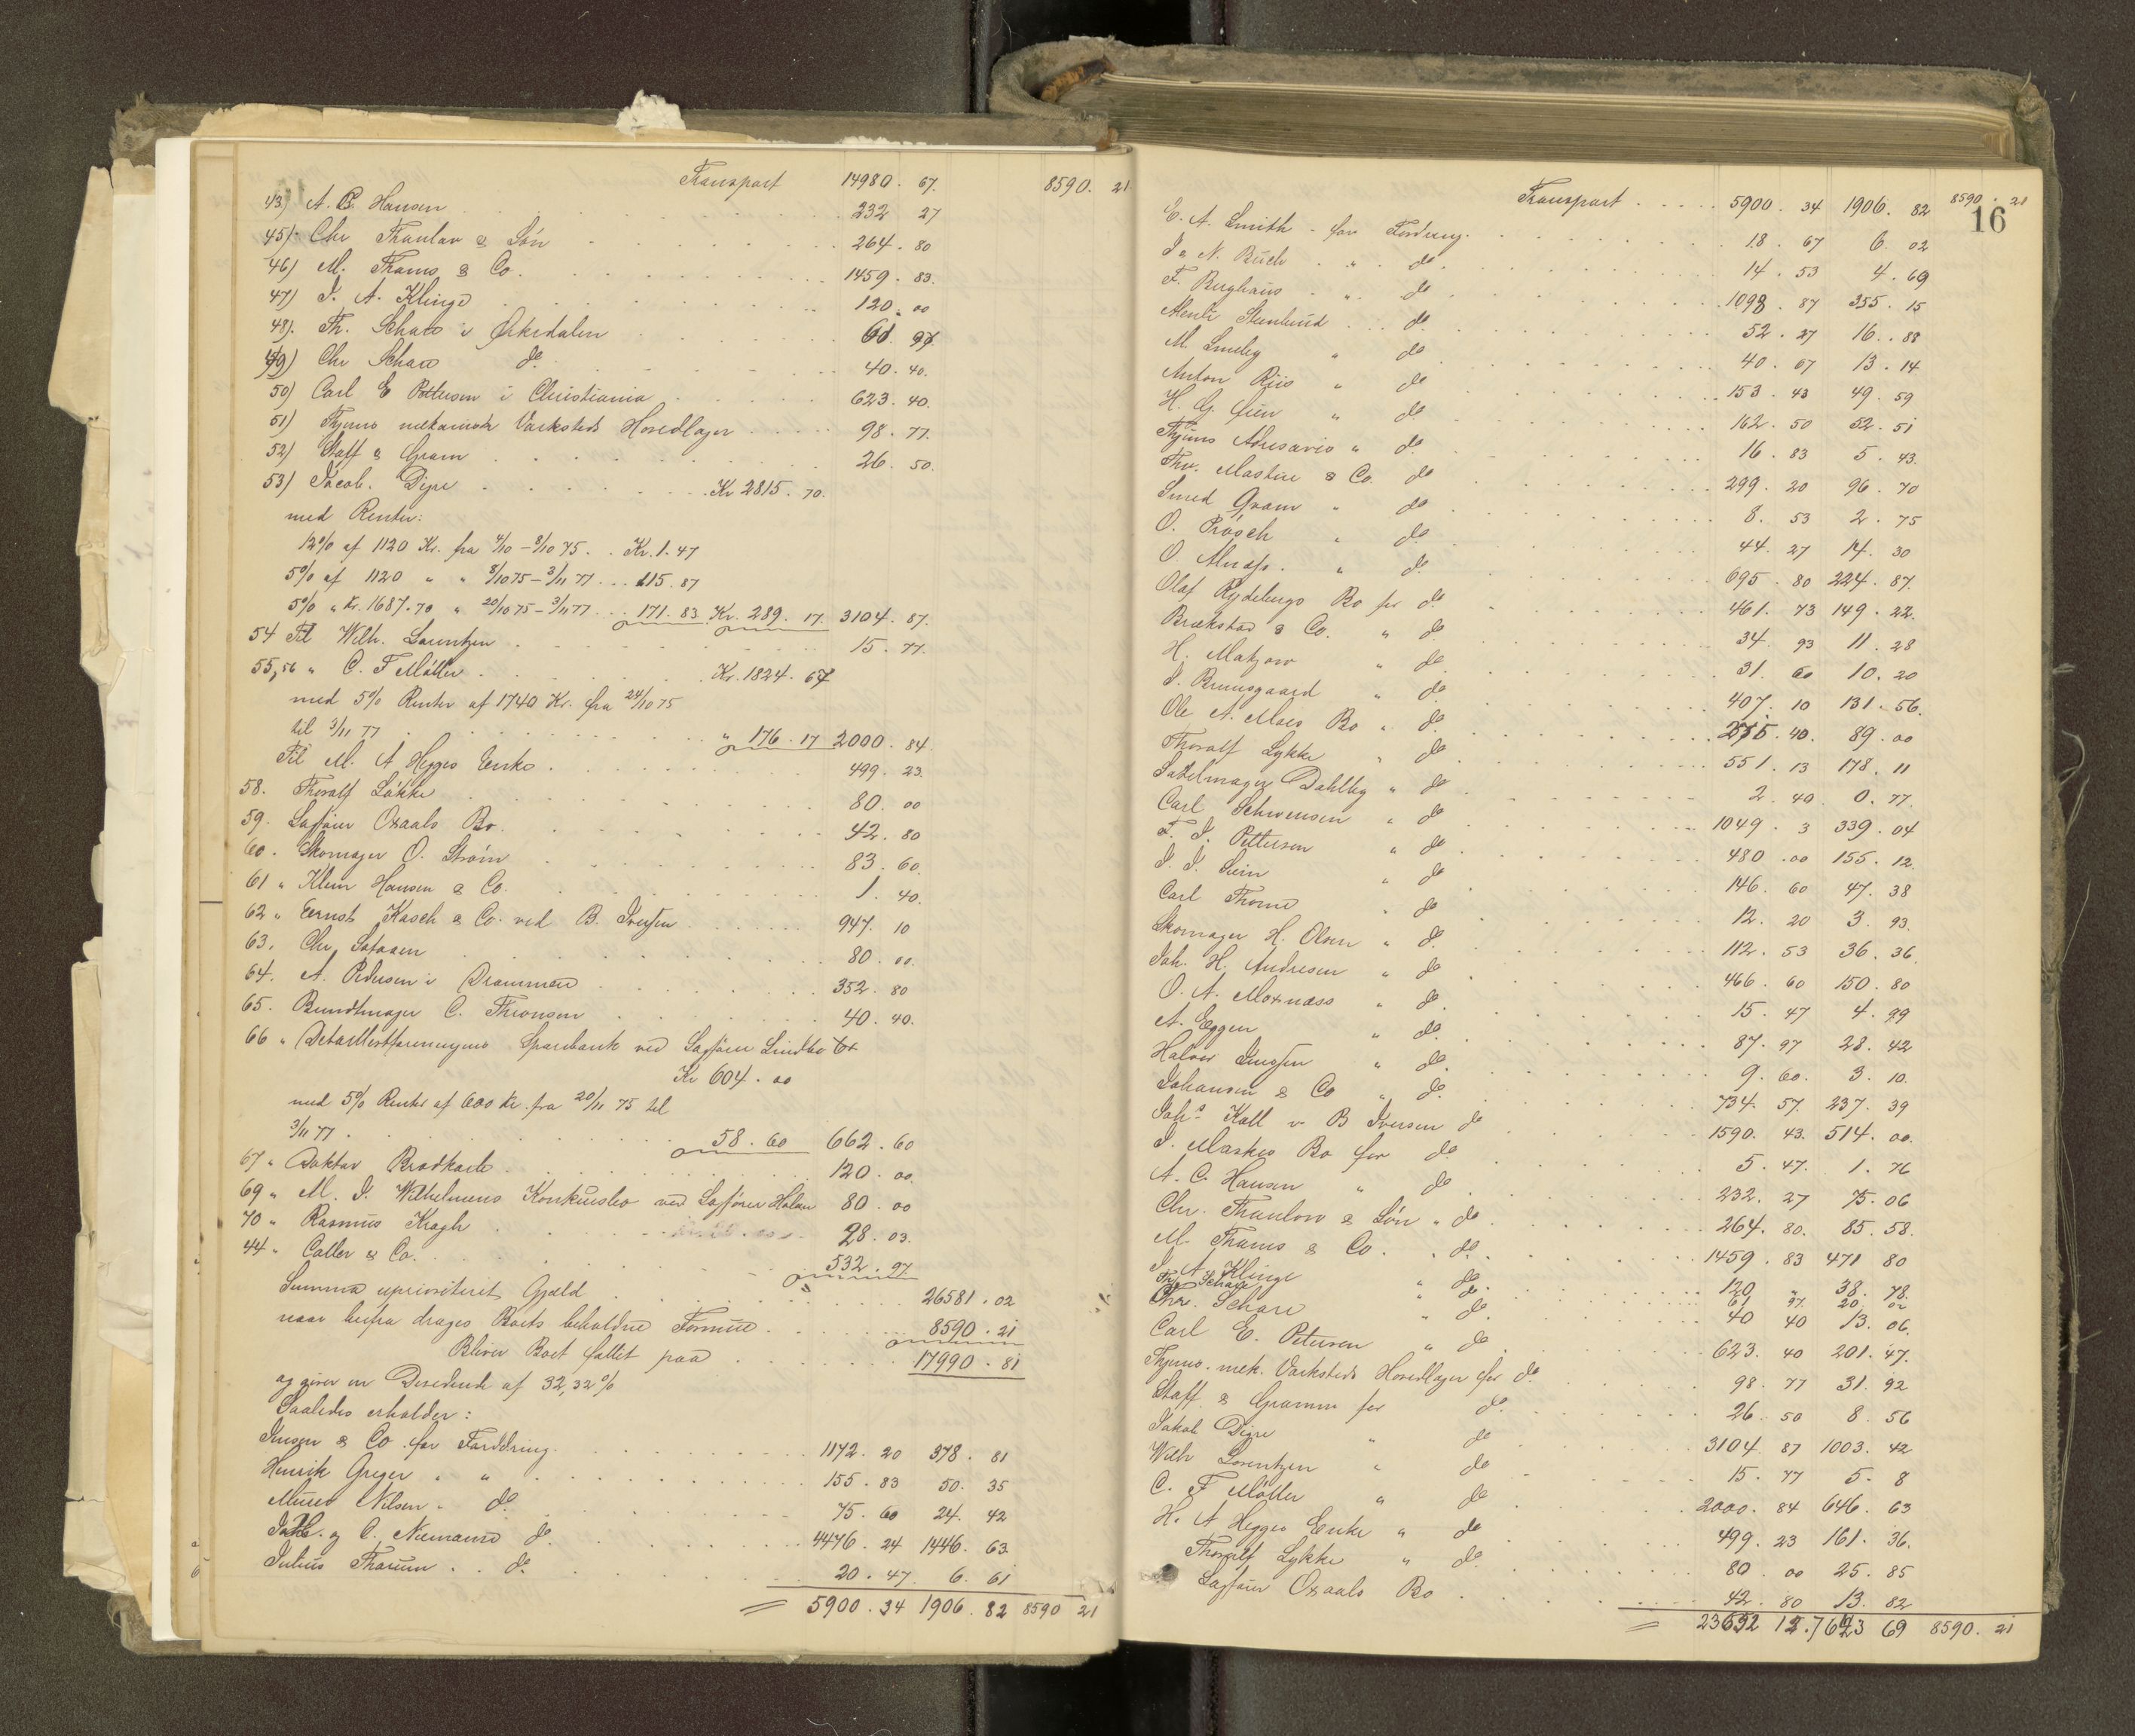 Transport 14980. 67. 8590. 21
43) A. C. Hansen 232 27
45) Chr Thaulow & Søn 264. 80
46) M. Thams & Co. 1459. 83.
47) I. A. Klinge 120. 00
48). Th. Schare i Orkedalen 61 97.
49) Chr Schare do 40. 40.
50) Carl E Pettersen i Christiania 623. 40.
51) Thjems mekaniske Værksteds Hovedlager 98. 77.
52) Staff & Gram 26. 50.
53) Jacob. Digre Kr 2815. 70.
med Renter:
12% af 1120 Kr. fra 4/10 - 8/10 75. . Kr. 1. 47
5% af 1120 " " 8/10 75 - 3/11 77 . . . 115. 87
5% " Kr. 1687. 70 " 20/10 75 - 3/11 77 . . . 171. 83. Kr. 289. 17. 3104. 87.
54 Til Wilh. Lorentzen 15. 77.
55, 56 " C. F Møller Kr. 1824. 67
med 5% Renter af 1740 Kr. fra 24/10 75
til 3/11 77 " 176. 17 2000. 84.
Til M. A Hegges Enke 499. 23.
58. Thoralf Løkke 80. 00
59. Sagfører Oxaals Bo 42. 80
60. Skomager O. Strøm 83. 60.
61 " Klem Hansen & Co. 1. 40.
62 " Ernst Kasch & Co. ved B. Iversen 947. 10
63. Chr 80. 00.
64. A. Pedersen i Drammen 352. 80
65. Bundtmager C. Thronsen 40. 40.
66 " Detaillistforeningens Sparebank ved Sagfører Lindbo
Kr 604. 00
med 5% Renter af 600 Kr. fra 20/11 75 til
3/11 77 58. 60 662. 60
67 " Doktor Brodkorb 120. 00.
69 " M. I. Wilhelmsens Konkursbo ved Sagfører Holan 80. 00
70 " Rasmus Kragh 28. 03.
44 " Coller & Co. 532. 97.
Summa uprioriteret Gjæld 26581. 02
naar herfra drages Boets beholdne Formue 8590. 21
Bliver Boet fallit paa 17990. 81
og giver en Dividende af 32,32%
Saaledes erholder:
Jensen & Co. for Fordring 1172. 20 378. 81
Henrik Greger " " 155. 83 50. 35
Murer Nilsen " do 75. 60 24. 42
og C. Niemann do 4476. 24 1446. 63.
Julius Thorum do. 20. 47. 6. 61
5900. 34 1906. 82 8590 21
16
Transport 5900. 34 1906. 82 8590. 21
E. A. Smith - for Fordring 18. 67 6. 02
I. N. Buch " do. 14. 53 4. 69
F. Berghaus " do 1098. 87 355. 15
Stenlund do 52. 27 16. 88
M. Lindby " do 40. 67 13. 14
Anton Riis " do 153. 43 49. 59
H. G. Guén " do 162. 50 52. 51
Thjems Adressavis " do. 16. 83 5. 43.
Thv. Mastine & Co. do 299. 20 96. 70
Smed Gram " do 8. 53 2. 75
O. Prøsch " do 44. 27 14. 30
O. " do. 695. 80 224. 87.
Olaf Rydebergs Bo for do. 461. 73 149. 22.
Brækstad & Co. " do 34. 93 11. 28
H. Matzow " do 31. 60 10. 20
I. Bruusgaard " do. 407. 10 131. 56.
Ole A. Moes Bo " do. 275. 40. 89. 00
Thoralf Lykke " do 551. 13 178. 11
Sadelmager Dahlby " do 2. 40. 0. 77.
Carl Schwensen " do 1049. 3 339. 04
F. I. Pettersen " do 480. 00 155. 12.
I. I. Siem " do 146. 60 47. 38
Carl Thorne " do 12. 20 3. 93.
Skomager H. Olsen " do. 112. 53 36. 36.
Joh. H. Andresen " do 466. 60 150. 80
O. A. Moxnæss " do. 15. 47 4. 99
A. Eggen " do. 87. 97 28. 42
Halvor Jenssen " do. 9. 60. 3. 10.
Johansen & Co " do. 734. 57. 237. 39
Johs Kall v B Iversen do 1590. 43. 514. 00.
I. Maskes Bo for do. 5. 47. 1. 76
A. C. Hansen " do 232. 27 75. 06
Chr. Thaulow & Søn " do. 264. 80. 85. 58.
M. Thams & Co. " do. 1459. 83 471 80
I. A. Klinge " do. 120 " 38. 78.
Th. Schare " do. 61 97. 20. 02
Chr. Schare " do. 40 40 13. 06.
Carl E. Petersen " do. 623. 40 201. 47.
Thjems. mek. Værksteds Hovedlager for do. 98. 77 31. 92
Staff & Gramm for do. 26. 50 8. 56
Jakob Digre " do 3104. 87 1003. 42
Wilh Lorentzen " do 15. 77 5. 8
C. F Møller " do 2000. 84 646. 63
H. A Hegges Enke " do 499. 23 161. 36.
Thoralf Lykke " do 80. 00 25. 85
Sagfører Oxaals Bo 42. 80 13. 82
23692 12. 7623 69 8590. 21